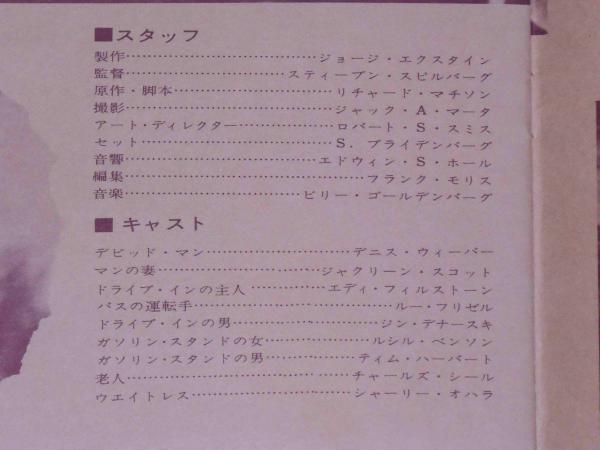 ■スタッフ
製作……………………………ジョージ・エクスタイン
監督……………………………スティーブン・スピルバーグ
原作・脚本……………………リチャード・マチソン
撮影……………………………ジャック・A・マータ
アート・ディレクター………ロバート・S・スミス
セット…………………………S．ブライデンバーグ
音響……………………………エドウィン・S・ホール
編集……………………………フランク・モリス
音楽……………………………ビリー・ゴールデンバーグ
■キャスト
デビッド・マン………………デニス・ウィーバー
マンの妻………………………ジャクリーン・スコット
ドライブ・インの主人………エディ・フィルストーン
バスの運転手…………………ルー・フリゼル
ドライブ・インの男…………ジン・デナースキ
ガソリン・スタンドの女……ルシル・ベンソン
ガソリン・スタンドの男……ティム・ハーバート
老人……………………………チャールズ・シール
ウエイトレス…………………シャーリー・オハラ